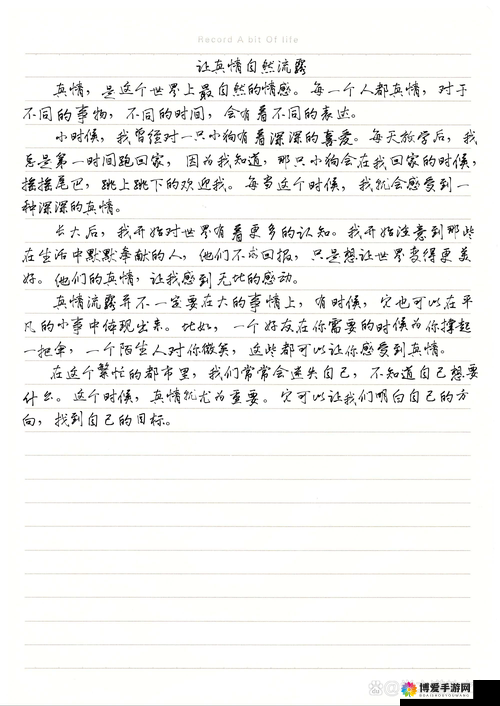 Record A bit Of life
让真情自然流露
真情，是这个世界上最自然的情感。每一个人都真情，对于
不同的事物，不同的时间，会有着不同的表达。
小时候，我曾经对一只小狗有着深深的喜爱。每天放学后，我
总是第一时间跑回家，因为我知道，那只小狗会在我回家的时候，
摇摇尾巴，跳上跳下的欢迎我。每当这个时候，我就会感受到一
种深深的真情。
长大后，我开始对世界有着更多的认知。我开始注意到那些
在生活中默默奉献的人，他们不求回报，只是想让世界变得更美
好。他们的真情，让我感到无比的感动。
真情流露并不一定要在大的事情上，有时候，它也可以在平
凡的小事中体现出来。比如，一个好友在你需要的时候为你撑起
一把伞，一个陌生人对你微笑，这些都可以让你感受到真情。
在这个繁忙的都市里，我们常常会迷失自己，不知道自己想要
什么。这个时候，真情就尤为重要。它可以让我们明白自己的方
向，找到自己的目标。
博爱手游网